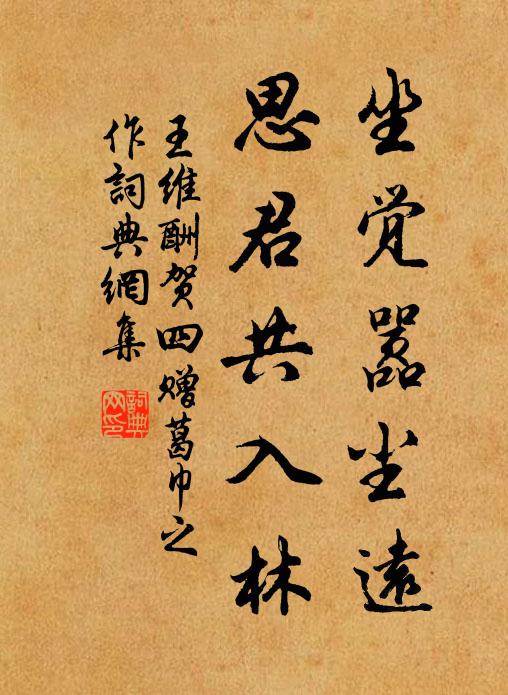 坐觉嚣尘遠
思君共入林
王維酬贺四赠葛巾之
作詞典網集
詞典
网印